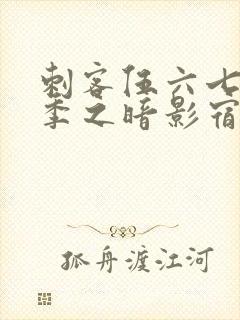 刺客伍六七
季之暗影宿
孤舟渡江河